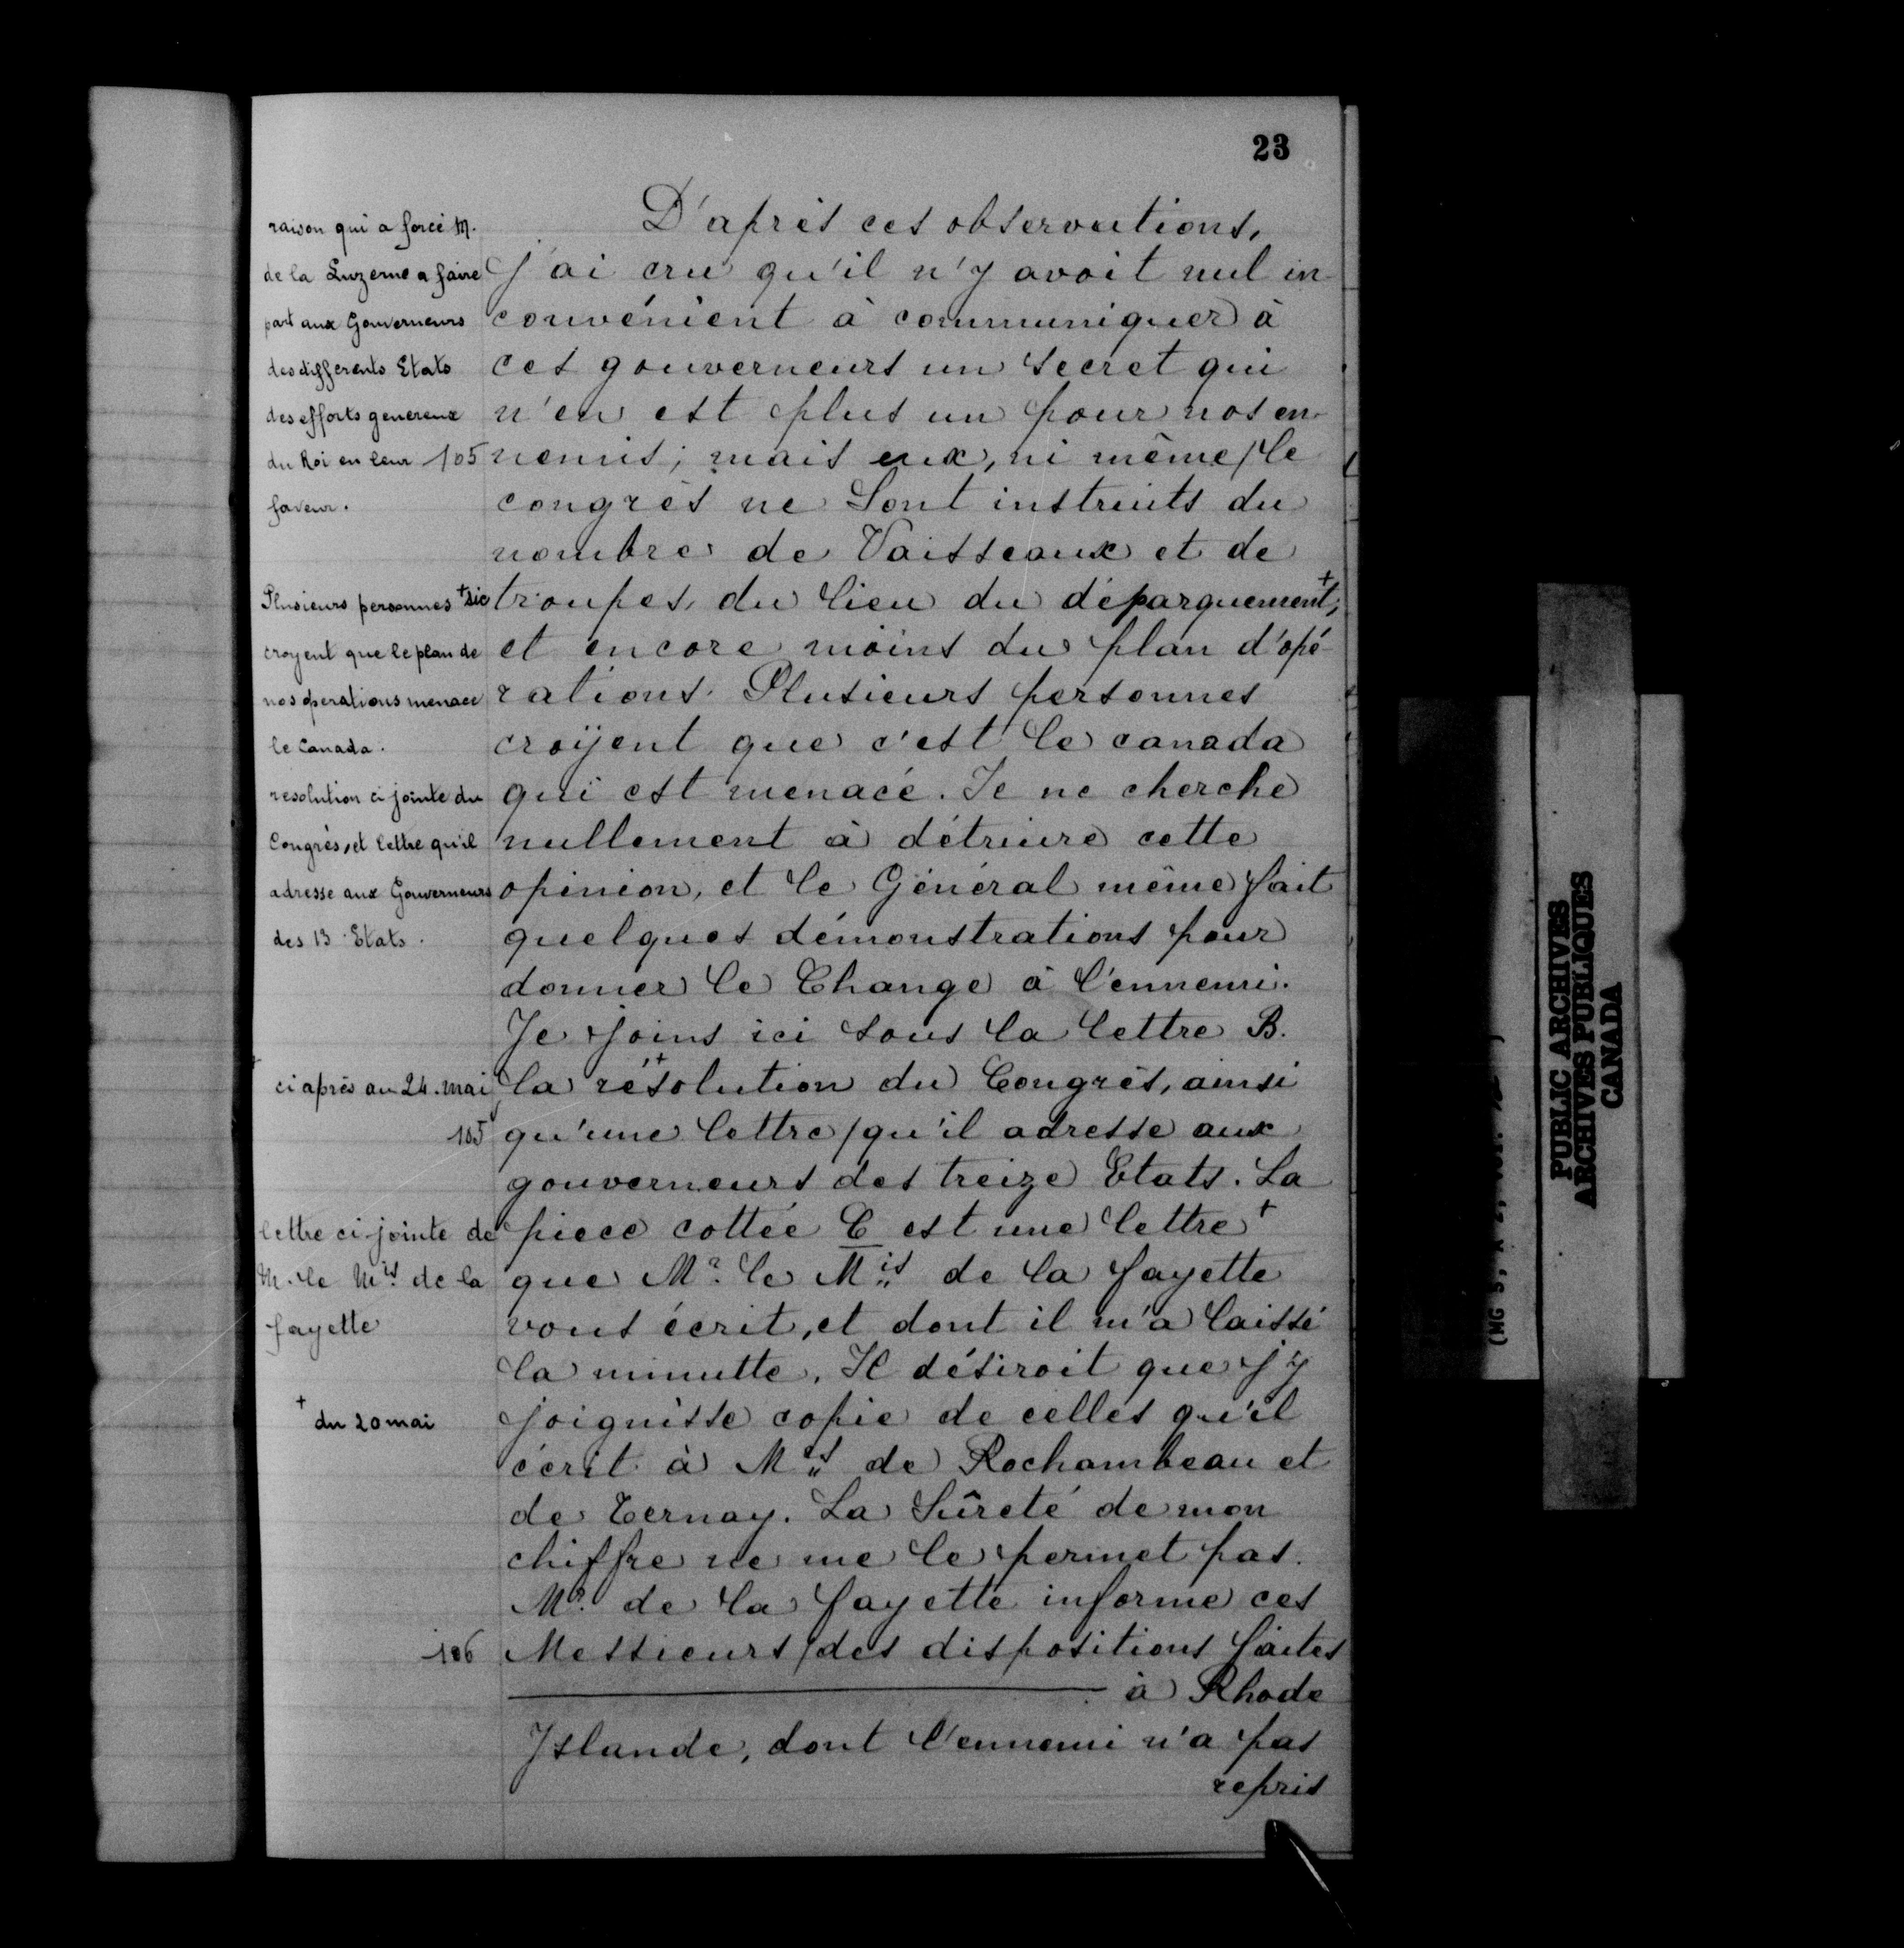 23
raison qui a forcé M.
de la Luzerne a faire
part aux Gouverneurs
des differents Etats
des efforts genereux
du Roi en leur 105
faveur.
Plusieurs personnes +sic
croyent que le plan de
nos operations menace
le Canada.
resolution ci jointe du
Congrès, et lettre qu'il
adresse aux Gouverneurs
des 13 Etats.
+
ci après au 24. mai
105
lettre ci-jointe de
M. le Mis. de la
fayette
+ du 20 mai
106
D'après ces observations,
j'ai cru qu'il n'y avoit nul in-
convénient à communiquer à
ces gouverneurs un secret qui
n'en est plus un pour nos en-
nemis; mais eux, ni même / le
congrès ne Sont instruits du
nombre de Vaisseaux et de
troupes, du lieu du déparquement+,
et encore moins du plan d'opé-
rations. Plusieurs personnes
croÿent que c'est le canada
qui est menacé. Je ne cherche
nullement à détriure cette
opinion, et le Général même fait
quelques démonstrations pour
donner le Change à l'ennemi.
Je joins ici sous la lettre B.
la résolution+ du Congrès, ainsi
qu'une lettre / qu'il adresse aux
gouverneurs des treize Etats. La
piece cottée C est une lettre+
que Mr. le Mis de la fayette
vous écrit, et dont il m'a laissé
la minutte. Il désiroit que j'y
joignisse copie de celles qu'il
écrit à Mrs de Rochambeau et
de Ternay. La Sûreté de mon
chiffre ne me le permet pas.
Mr. de la fayette informe ces
Messieurs / des dispositions faites
à Rhode
Islande, dont l'ennemi n'a pas
repris
PUBLIC ARCHIVES
ARCHIVES PUBLIQUES
CANADA